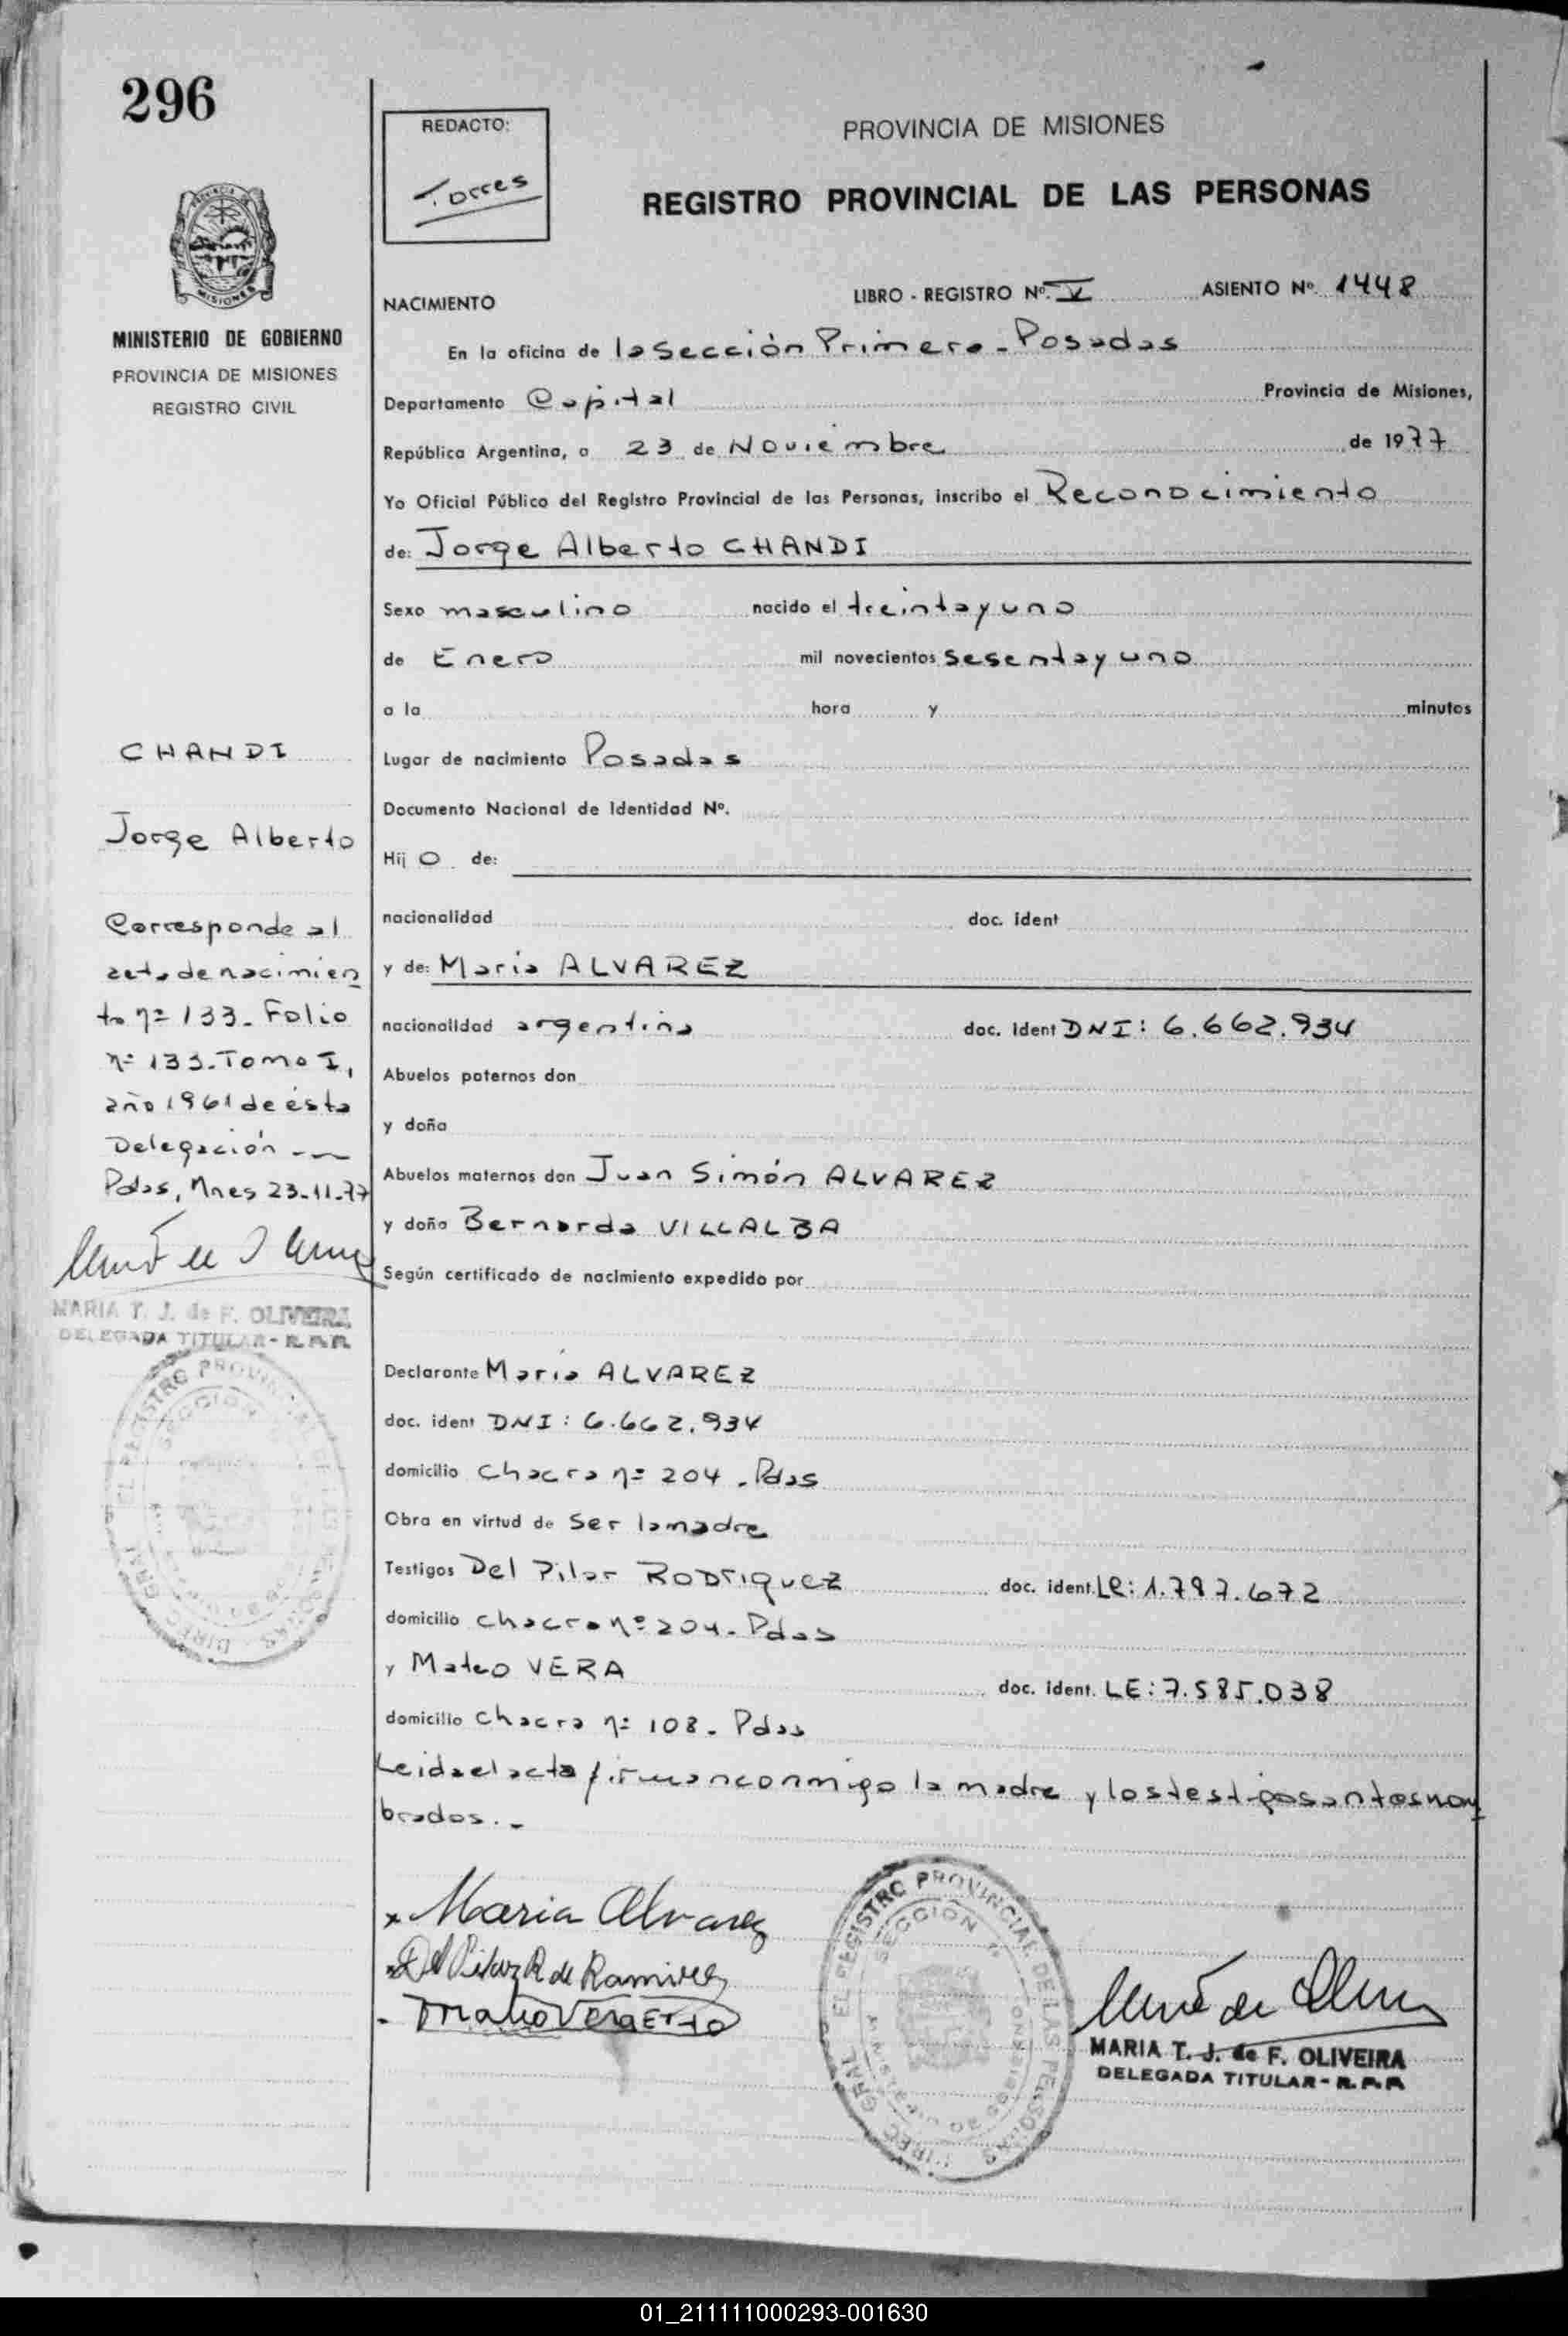 296
REDACTO:
Torres
PROVINCIA DE MISIONES
REGISTRO PROVINCIAL DE LAS PERSONAS
MISIONES
MINISTERIO DE GOBIERNO
PROVINCIA DE MISIONES
REGISTRO CIVIL
NACIMIENTO
LIBRO - REGISTRO Nº. V ASIENTO Nº. 1448
En la oficina de la Sección Primera - Posadas
Departamento Capital Provincia de Misiones,
República Argentina, a 23 de Noviembre de 1977
Yo Oficial Público del Registro Provincial de las Personas, inscribo el Reconocimiento
de: Jorge Alberto CHANDI
Sexo masculino nacido el treinta y uno
de Enero mil novecientos sesenta y uno
a la hora y minutos
Lugar de nacimiento Posadas
Documento Nacional de Identidad Nº.
Hij o de:
nacionalidad doc. ident
y de: Maria ALVAREZ
nacionalidad argentina doc. ident DNI: 6.662.934
Abuelos paternos don
y doña
Abuelos maternos don Juan Simón ALVAREZ
y doña Bernarda VILLALBA
Según certificado de nacimiento expedido por
Declarante Maria ALVAREZ
doc. ident DNI: 6.662.934
domicilio Chacra nº 204 - Pdas
Obra en virtud de Ser la madre
Testigos Del Pilar RODRIGUEZ doc. ident. LE: 1.797.672
domicilio chacra nº 204 - Pdas
y Mateo VERA doc. ident. LE: 7.585.038
domicilio chacra nº 108 - Pdas
Leida el acta firman conmigo la madre y los testigos antes nom
brados.-
CHANDI
Jorge Alberto
Corresponde al
acta de nacimien
to nº 133 - Folio
nº 133 - Tomo I,
año 1961 de ésta
Delegación
Pdas, Mnes 23-11-77
MARIA T. J. de F. OLIVEIRA
DELEGADA TITULAR - R.P.P.
DIREC. GRAL. EL REGISTRO PROVINCIAL DE LAS PERSONAS
SECCION
x Maria Alvarez
Del Pilar R de Ramirez
- Mateo Vera
DIREC. GRAL. EL REGISTRO PROVINCIAL DE LAS PERSONAS
SECCION 1ª
MARIA T. J. de F. OLIVEIRA
DELEGADA TITULAR - R.P.P.
01_211111000293-001630